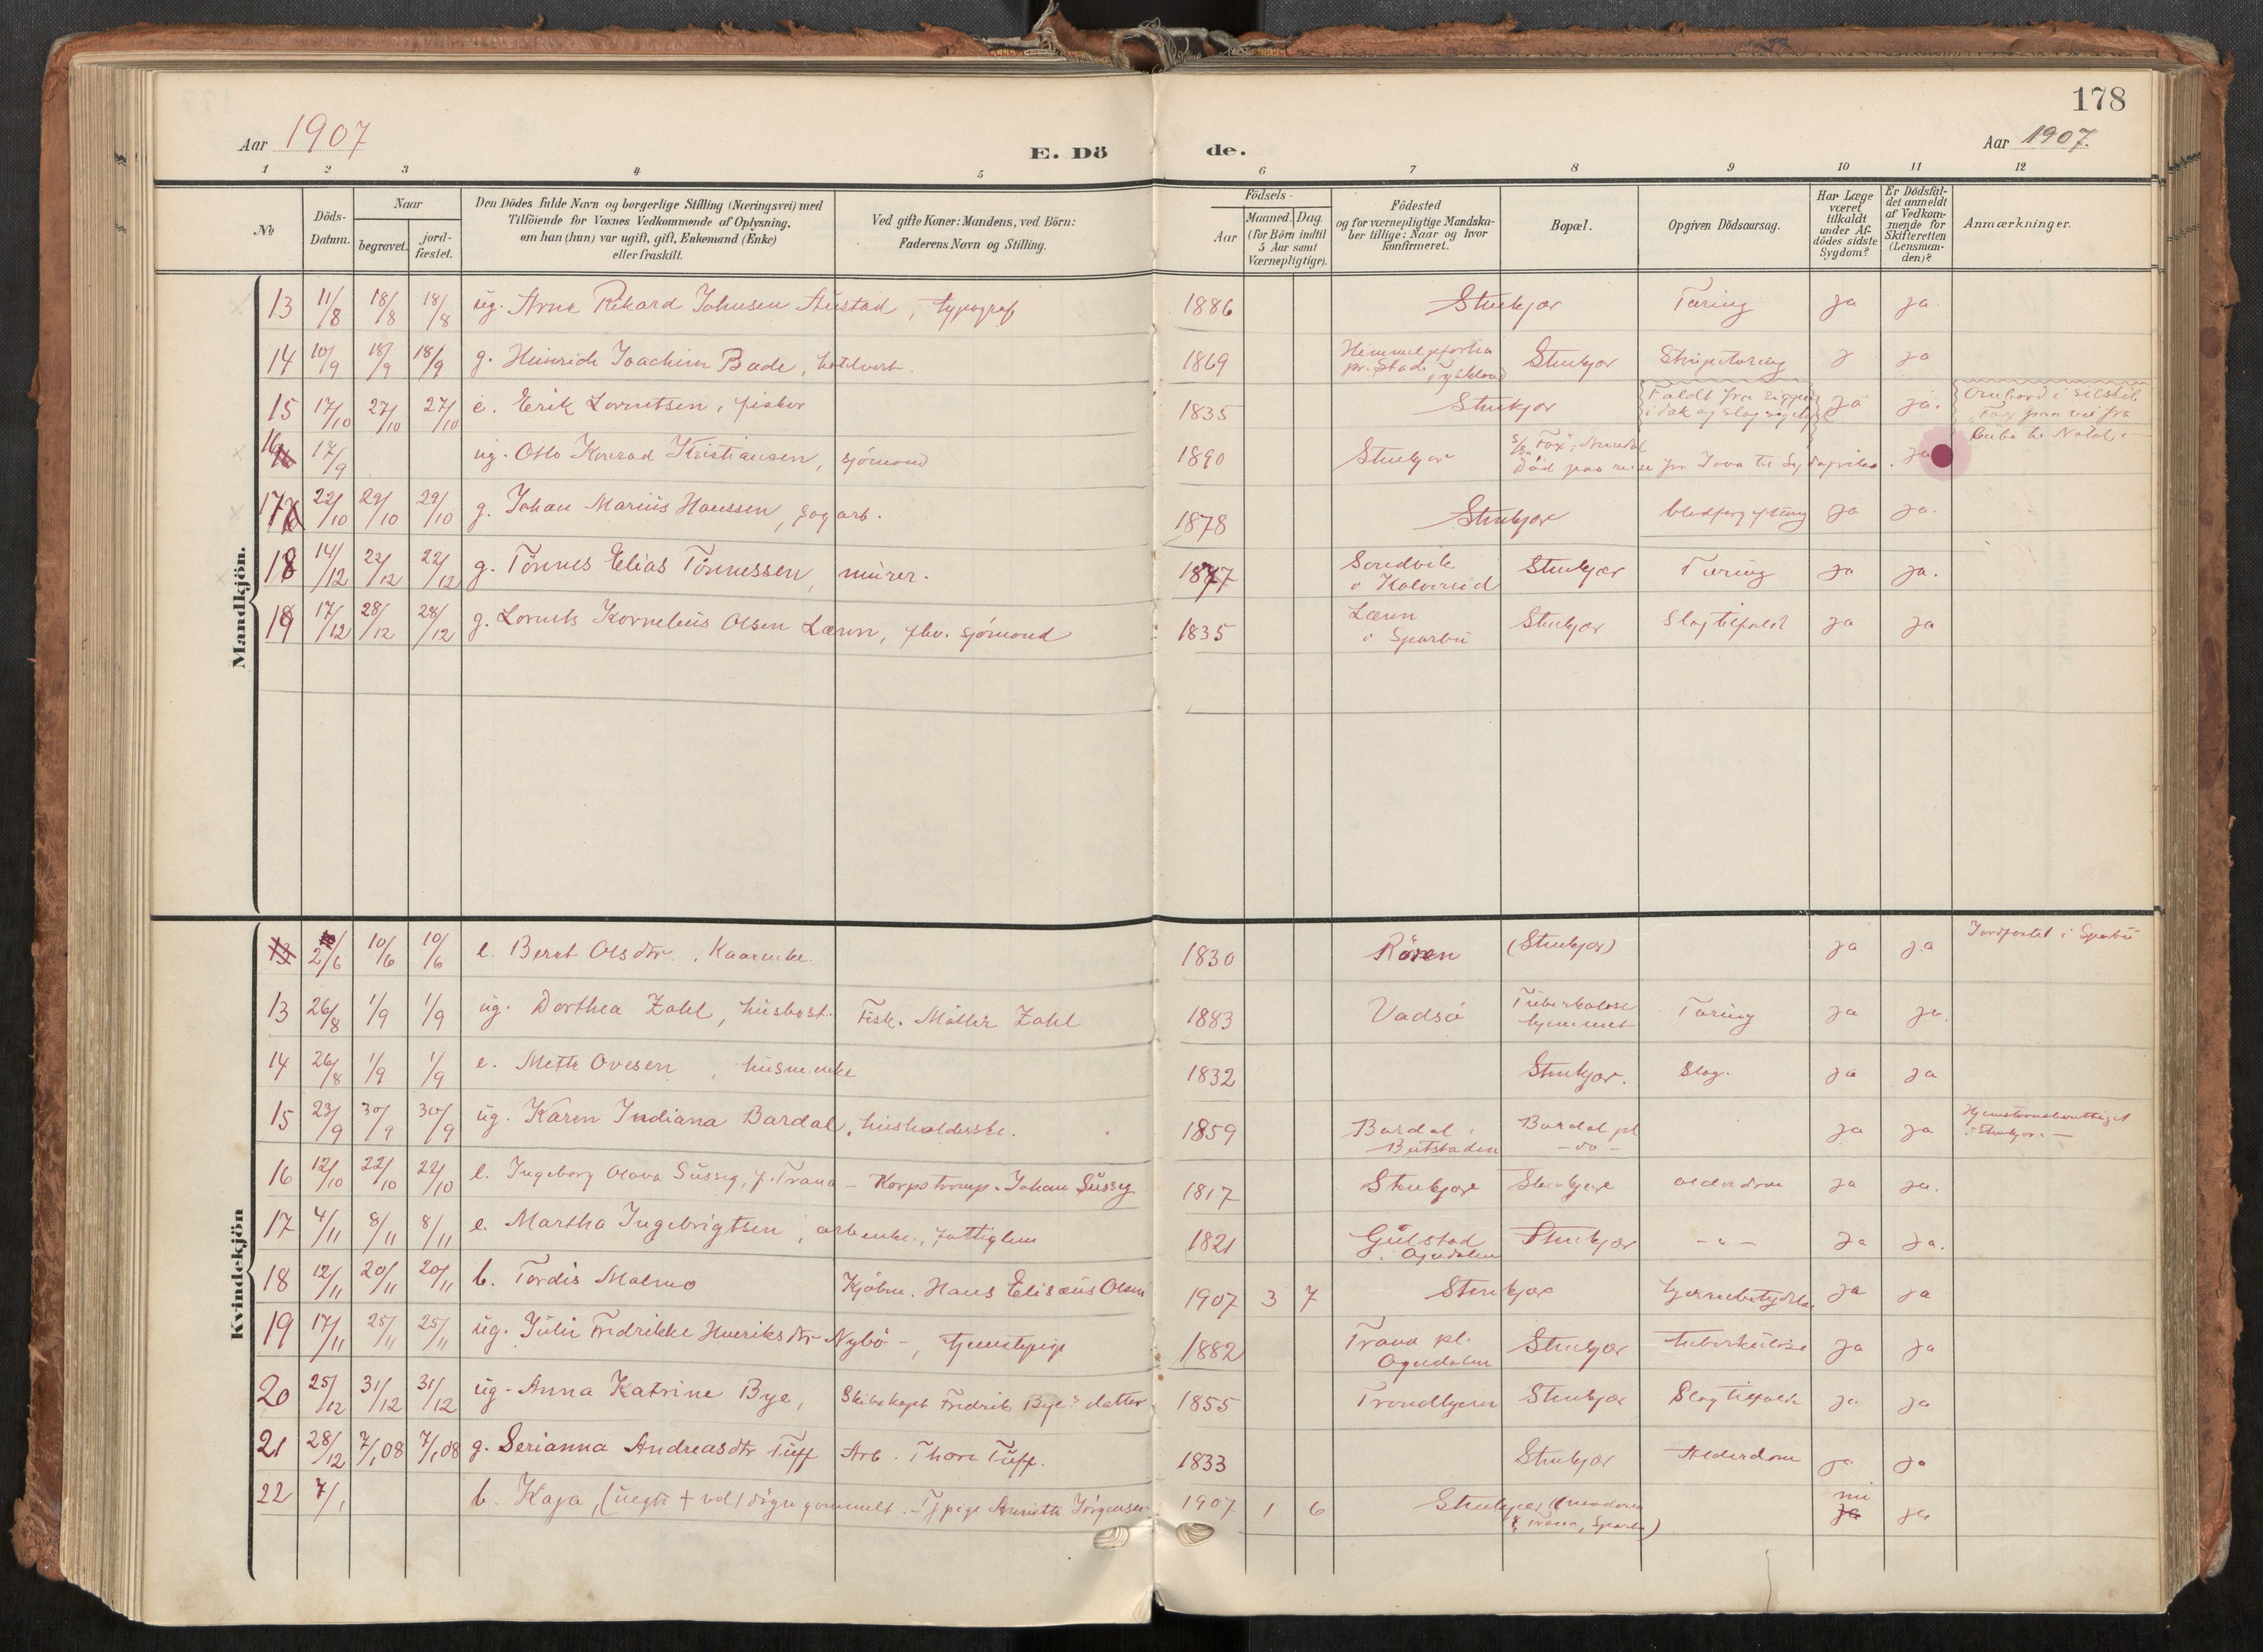 178
Aar 1907
E. Dö
de.
Aar 1907.
1 2 3 4 5 6 7 8 9 10 11 12
No
Döds-Datum.
Naar
begravet.
jord-fæstet.
Den Dödes fulde Navn og borgerlige Stilling (Næringsvei) med
Tilföiende for Voxnes Vedkommende af Oplysning,
om han (hun) var ugift, gift, Enkemand (Enke)
eller fraskilt.
Ved gifte Koner: Mandens, ved Börn:
Faderens Navn og Stilling.
Födsels-
Aar
Maaned. Dag
(for Börn indtil
5 Aar samt
Værnepligtige).
Födested
og for værnepligtige Mandska-
ber tillige: Naar og hvor
Konfirmeret.
Bopæl.
Opgiven Dödsaarsag.
Har Læge
været
tilkaldt
under Af-
dödes sidste
Sygdom?
Er Dödsfal-
det anmeldt
af Vedkom-
mende for
Skifteretten
(Lensman-
den)?
Anmærkninger.
Mandkjön.
13 11/8 18/8 18/8 ug. Arne Rikard Johnsen Austad, typograf 1886 Stenkjær Tæring ja ja.
14 10/9 18/9 18/9 g. Heinrich Joachim Bade, hotelvert. 1869 Himmelpforten pr. Stade Tyskland Stenkjær Strupetæring j ja
15 17/10 27/10 27/10 e. Erik Lorntsen, fisker 1835 Stenkjær ja ja.
Faldt fra riggen
Ombord i
Cuba til Natal
16 17/9 ug. Otto Konrad Kristiansen, sjömand 1890 Stenkjær Död paa reise fra Java til ja
17 22/10 29/10 29/10 g. Johan Marius Hanssen, sagarb. 1878 Stenkjær blodforgiftning ja ja.
18 14/12 22/12 22/12 g. Tönnes Elias Tönnessen, murer. 1847 Sandvik Stenkjær Tæring ja ja.
19 17/12 28/12 28/12 g. Lornts Kornelius Olsen Lænn, fhv. sjömand 1835 Lænn i Sparbu Stenkjær Slagtilfælde ja ja
Kvindekjön
13 2/6 10/6 10/6 e. Beret Olsdtr., Kaarenke. 1830 Rören (Stenkjær) ja ja Jordfæstet i Sparbu
13 26/8 1/9 1/9 ug. Dorthea Zahl, Fisk. Möller Zahl 1883 Vadsö Tuberkulosehjemmet Tæring ja ja.
14 26/8 1/9 1/9 e. Mette Ovesen, husm.enke 1832 Stenkjær. Slag. ja ja
15 23/9 30/9 30/9 ug. Karen Indiana Bardal, husholderske. 1859 Bardal i Beitstaden Bardal pl -do- ja ja
16 12/10 22/10 22/10 e. Ingeborg Olava Süsseg, f. Trana - Korpstromp. Johan Süsseg 1817 Stenkjær Stenkjær alderdom ja ja.
17 4/11 8/11 8/11 e. Martha Ingebrigtsen, arb.enke., fattiglem 1821 Gulstad i Ogndalen Stenkjær - " - ja ja.
18 12/11 20/11 20/11 b. Tordis Malmo Kjöbm. Hans Elisæus Olsen 1907 3 7 Stenkjær ja ja
19 17/11 25/11 25/11 ug. Juli Fredrikke Henriksdtr Nybö -, tjenestepige 1882 Trana pl. Ogndalen Stenkjær tuberkulose ja ja
20 25/12 31/12 31/12 ug. Anna Katrine Bye, Skibskapt. Fredrik Bye's datter 1855 Trondhjem Stenkjær Slagtilfælde ja ja
21 28/12 7/1 08 7/1 08 g. Serianna Andreasdtr Tuff Arb. Thore Tuff. 1833 Stenkjær Alderdom ja ja
22 7/1 b. Kaja, (uegte + vel 1 dögn gammelt. - Tj.pige Annette Jörgensen 1907 1 6 Stenkjær (moderen Trana, Sparbu) nei ja ja